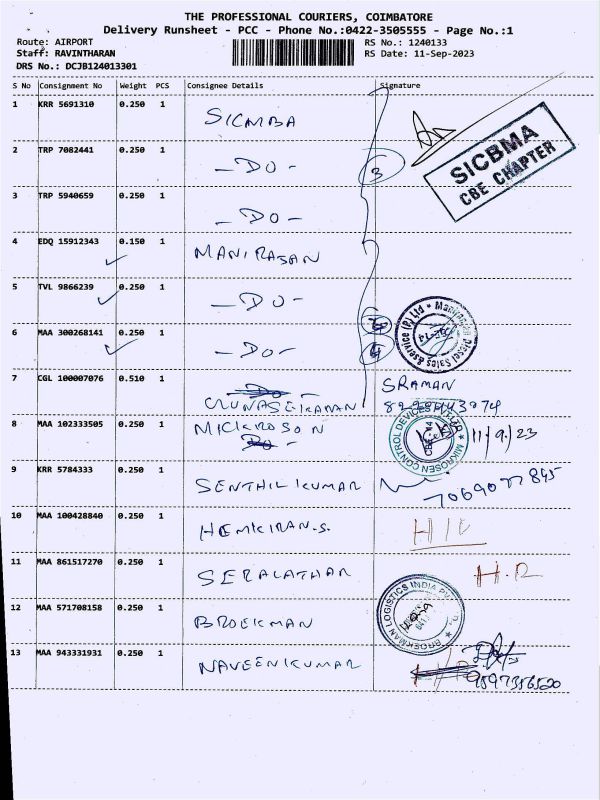 THE PROFESSIONAL COURIERS, COIMBATORE
Delivery Runsheet - PCC - Phone No.:0422-3505555 - Page No.:1
Route: AIRPORT
RS No.: 1240133
Staff: RAVINTHARAN
RS Date: 11-Sep-2023
DRS No.: DCJB124013301
S No Consignment No Weight PCS Consignee Details Signature
1 KRR 5691310 0.250 1 SICMBA
SICBMA
CBE CHAPTER
2 TRP 7082441 0.250 1 -DO- 3
3 TRP 5940659 0.250 1 -DO-
4 EDQ 15912343 0.150 1 MANIRASAN
5 TVL 9866239 0.250 1 -DO-
6 MAA 300268141 0.250 1 -DO-
Diesel Sales &service (P) Ltd
7 CGL 100007076 0.510 1 SRAMAN
8 MAA 102333505 0.250 1 MICKROSON 11/9/23
MIKROSEN CONTROL DEVICES
9 KRR 5784333 0.250 1 SENTHIL KUMAR 7069077845
10 MAA 100428840 0.250 1 HEMKIRAN.S.
11 MAA 861517270 0.250 1 SERALATHAR H.R
12 MAA 571708158 0.250 1 BROEKMAN
BROEKMAN LOGISTICS INDIA
13 MAA 943331931 0.250 1 NAVEENKUMAR
9597356520